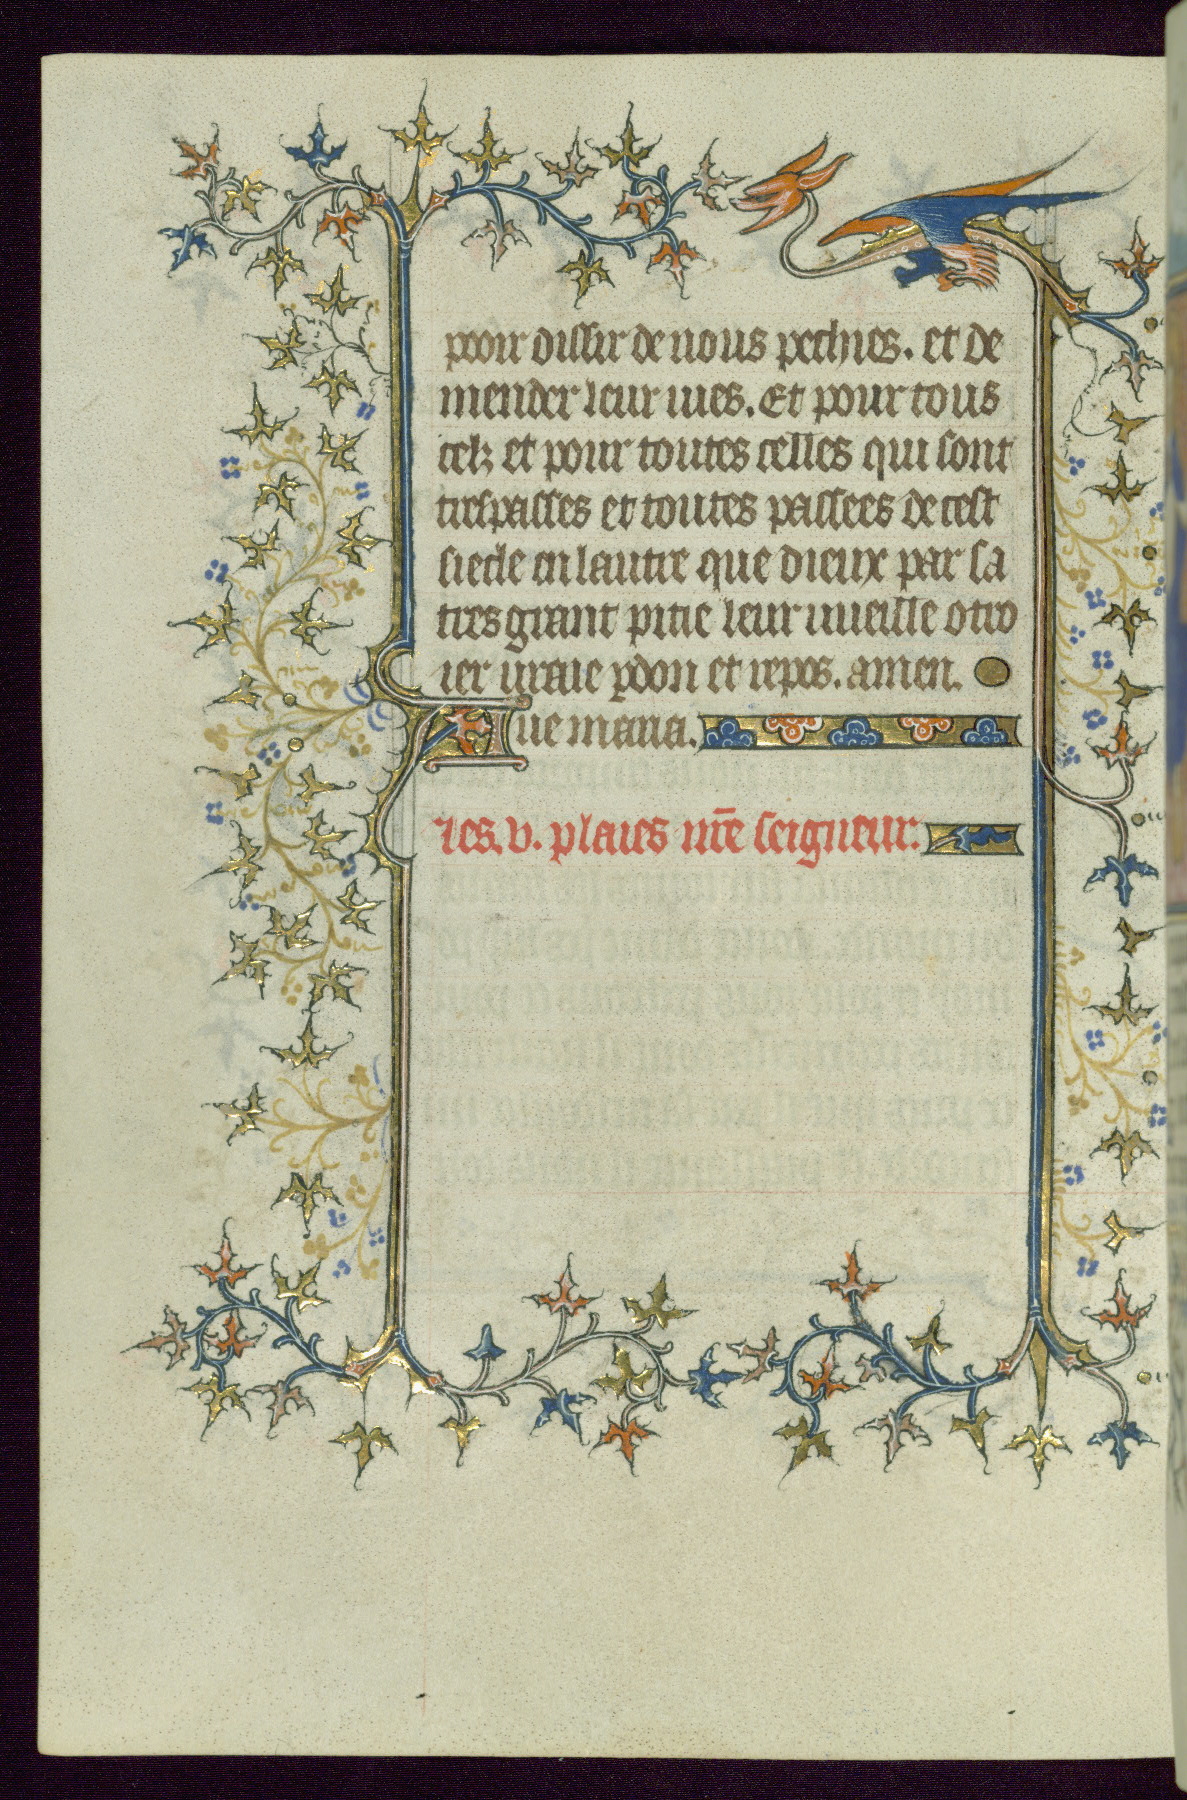 pooir dissir de nous pechies. et de
mender leur uies. Et pour tous
celz et pour toutes celles qui sont
trespasses et toutes passees de cest
siecle en lautre que dieux par sa
tres grant pitie leur uueille otro
ier uraie pdon et repos. amen.
Aue maria.
Les .v. plaies nr̄e seigneur.